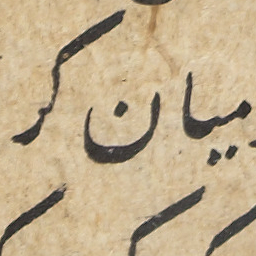 میان کر